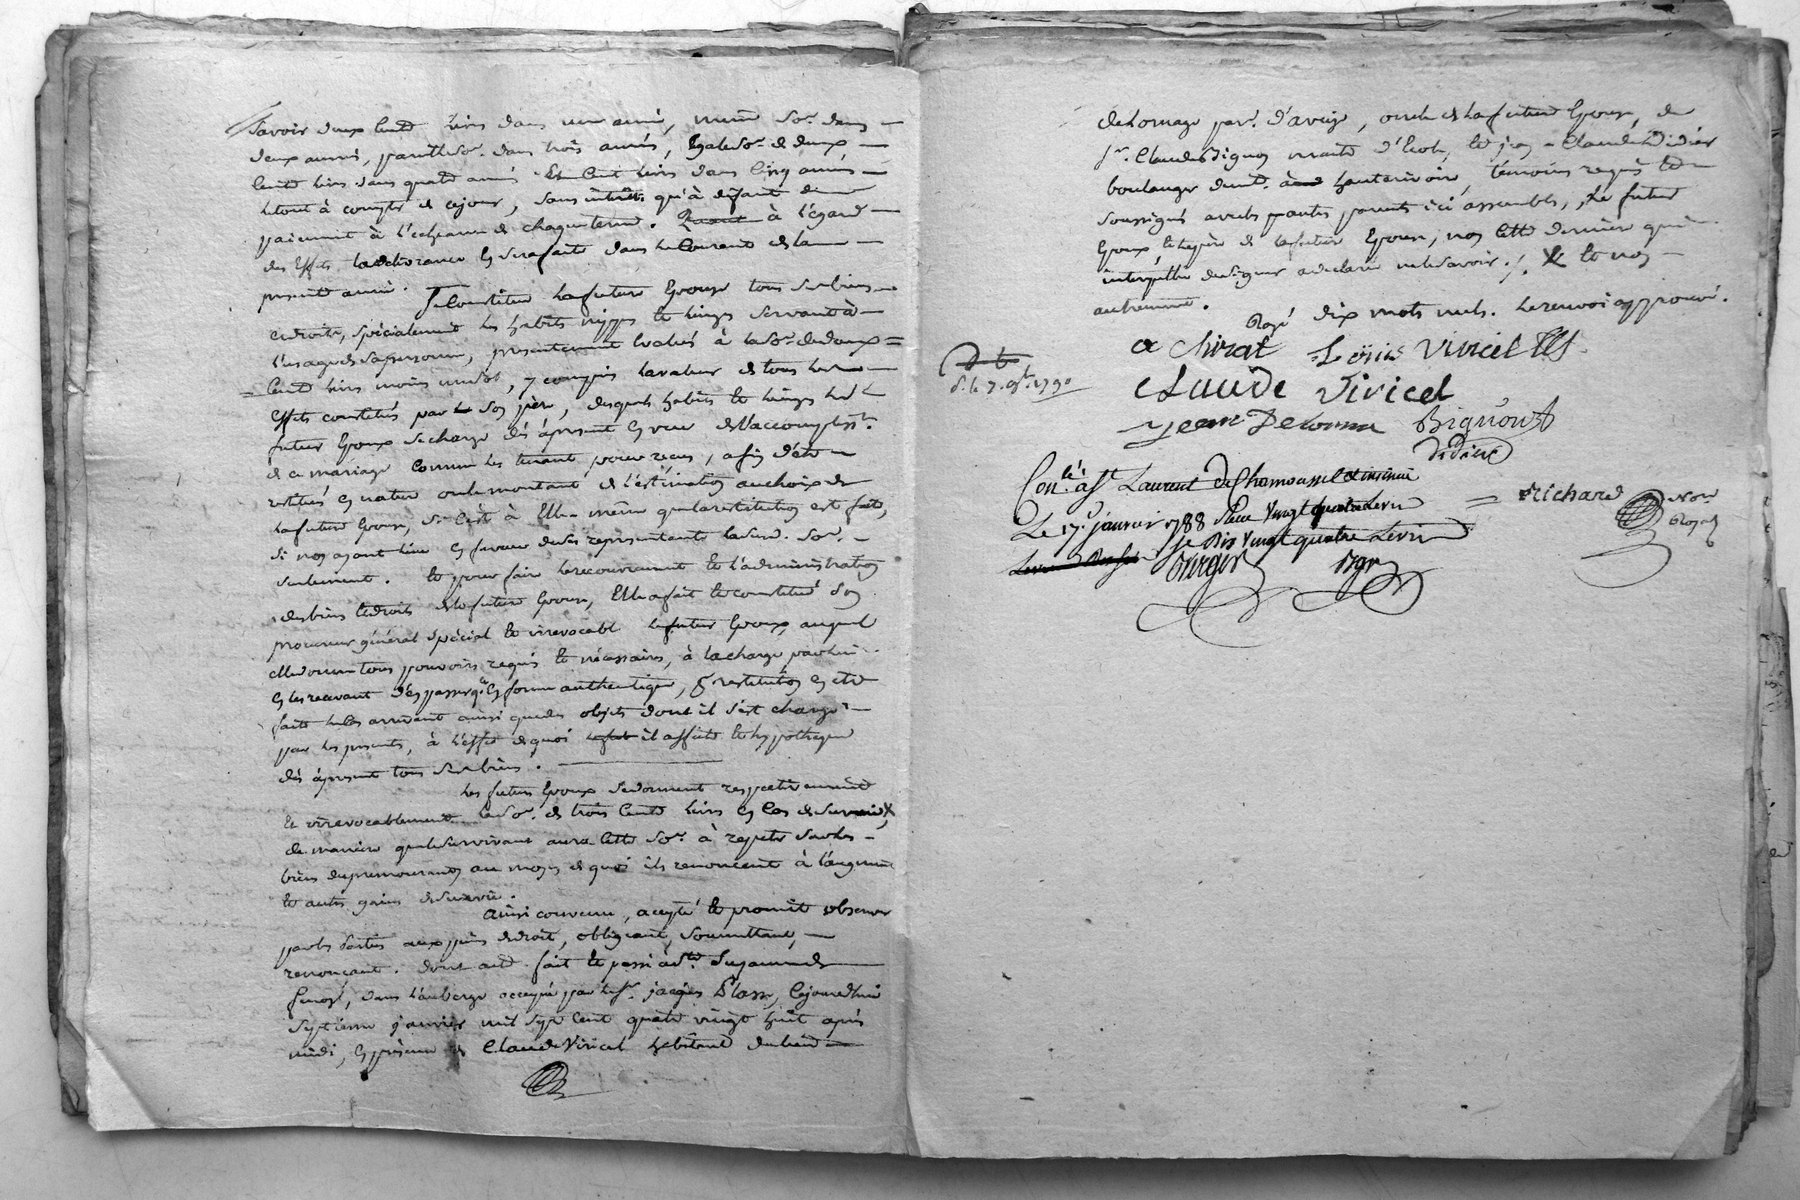 Savoir deux cents livres dans une année, même So.e dans
deux années, pareille So.e dans trois années, Egale So.e de deux
cents livres dans quatre années Et Cent livres dans Cinq années
le tout à compter de ce jour, sans intérêts qu'à défaut de
paiement à l'echeance de chaque terme. Quant à l'égard
des Effets la delivrance En sera faite dans le Courant de la
presente année.
Se Constitue la future Epouse tous ses biens
et droits, spécialement les habits nippes et linges servant à
l'usage de sa personne, presentement Evalués à la So.e de deux
Cents livres moins, y compris la valeur de tous les
Effets constitués par le Son père, desquels habits et linges le d.
futur Epoux se charge dès àpresent En vue de l'accompliss.t
de ce mariage Comme les tenant pour recus, afin d'être
restitués En nature ou le montant de l'estimation au choix de
la future Epouse, Si c'est à Elle-même que la restitution est faite,
Si non ayant lieu En faveur de ses representants la susd. So.e
seulement. Et pour faire le recouvrement Et l'administration
des biens Et droits de la future Epouse, Elle a fait Et constitué Son
procureur général spécial Et irrevocable le futur Epoux, auquel
Elle donne tous pouvoirs requis Et nécessaires, à la charge par lui
En les recevant d'en passer q.ce En forme authentique, p.r restitution En etre
faite le cas arrivant ainsi que des objets dont il s'est chargé
par les presentes, à l'effet de quoi le fut il affecte Et hypotheque
dès àpresent tous ses biens.
Les futurs Epoux se donnent respectivement
Et irrevocablement la So.e de trois Cents livres En Cas de survie X
de manière que le survivant aura cette So.e à repeter sur les
biens du premourant au moyen de quoi ils renoncent à l'augment
Et autres gains de survie.
Ainsi convenu, accepté Et promit observer
par les Parties aux peines de droit, obligeant, Soumettant,
renonçant. Dont acte fait Et passé à
dans l'auberge occupée par le S.r jacques Blasse, Cejourd'hui
Septieme janvier mil Sept Cent quatre vingt huit après
midi, En présence de Claude Viricel habitant du lieu
de Lornage par. d'aveize, oncle de la future Epouse, de
S.r Claude Bignon maitre d'Ecole, Et jean-Claude Didier
boulanger dem.t à hauterivoire, temoins requis Et
Soussignés avec les parties parents ici assemblés, Le futur
Epoux, Et le père de la future Epouse, non cette derniere qui
interpellée de signer a declaré ne le savoir ./. X Et non
autrement.
Rayé dix mots nuls. Le renvoi approuvé.
a chirat Loüis Viricel fils
S. le 7. 9bre 1790
claude Viricel
jean Delorme Bignon
Didier
Con.lé à S.t Laurent de Chamousset Et insinué
Le 17. janvier 1788 Reçu Vingt quatre Livres
Je Dis Vingt quatre Livres
Verger
Richard No.re
Royal